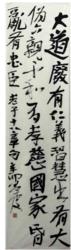 大道廢有仁義智慧出有大
偽六親不和有孝慈國家昏
亂有忠臣 老子十八章